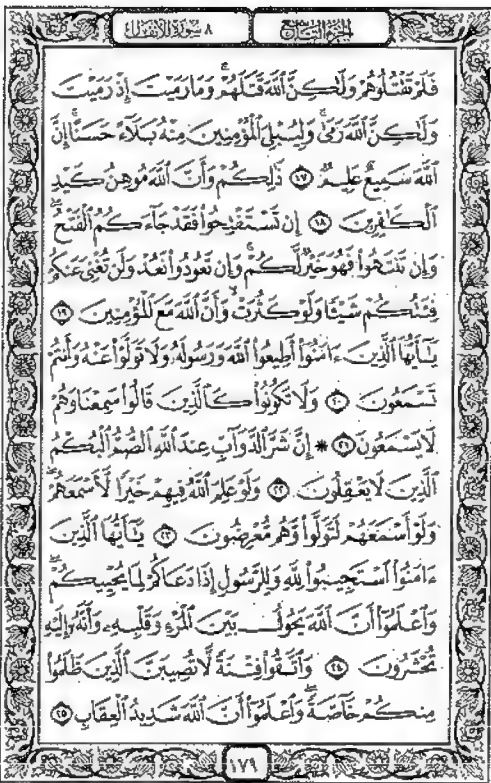 ٨ سورة الأنفال
الجزء التاسع
فَلَمْ تَقْتُلُوهُمْ وَلَٰكِنَّ ٱللَّهَ قَتَلَهُمْ ۚ وَمَا رَمَيْتَ إِذْ رَمَيْتَ
وَلَٰكِنَّ ٱللَّهَ رَمَىٰ ۚ وَلِيُبْلِىَ ٱلْمُؤْمِنِينَ مِنْهُ بَلَآءً حَسَنًا ۚ إِنَّ
ٱللَّهَ سَمِيعٌ عَلِيمٌ ١٧ ذَٰلِكُمْ وَأَنَّ ٱللَّهَ مُوهِنُ كَيْدِ
ٱلْكَٰفِرِينَ ١٨ إِن تَسْتَفْتِحُوا۟ فَقَدْ جَآءَكُمُ ٱلْفَتْحُ ۖ
وَإِن تَنتَهُوا۟ فَهُوَ خَيْرٌ لَّكُمْ ۖ وَإِن تَعُودُوا۟ نَعُدْ وَلَن تُغْنِىَ عَنكُمْ
فِئَتُكُمْ شَيْـًٔا وَلَوْ كَثُرَتْ وَأَنَّ ٱللَّهَ مَعَ ٱلْمُؤْمِنِينَ ١٩
يَٰٓأَيُّهَا ٱلَّذِينَ ءَامَنُوٓا۟ أَطِيعُوا۟ ٱللَّهَ وَرَسُولَهُۥ وَلَا تَوَلَّوْا۟ عَنْهُ وَأَنتُمْ
تَسْمَعُونَ ٢٠ وَلَا تَكُونُوا۟ كَٱلَّذِينَ قَالُوا۟ سَمِعْنَا وَهُمْ
لَا يَسْمَعُونَ ٢١ ۞ إِنَّ شَرَّ ٱلدَّوَآبِّ عِندَ ٱللَّهِ ٱلصُّمُّ ٱلْبُكْمُ
ٱلَّذِينَ لَا يَعْقِلُونَ ٢٢ وَلَوْ عَلِمَ ٱللَّهُ فِيهِمْ خَيْرًا لَّأَسْمَعَهُمْ ۖ
وَلَوْ أَسْمَعَهُمْ لَتَوَلَّوا۟ وَّهُم مُّعْرِضُونَ ٢٣ يَٰٓأَيُّهَا ٱلَّذِينَ
ءَامَنُوا۟ ٱسْتَجِيبُوا۟ لِلَّهِ وَلِلرَّسُولِ إِذَا دَعَاكُمْ لِمَا يُحْيِيكُمْ ۖ
وَٱعْلَمُوٓا۟ أَنَّ ٱللَّهَ يَحُولُ بَيْنَ ٱلْمَرْءِ وَقَلْبِهِۦ وَأَنَّهُۥٓ إِلَيْهِ
تُحْشَرُونَ ٢٤ وَٱتَّقُوا۟ فِتْنَةً لَّا تُصِيبَنَّ ٱلَّذِينَ ظَلَمُوا۟
مِنكُمْ خَآصَّةً ۖ وَٱعْلَمُوٓا۟ أَنَّ ٱللَّهَ شَدِيدُ ٱلْعِقَابِ ٢٥
١٧٩